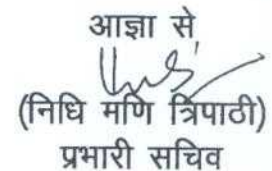 आज्ञा से,
(निधि मणि त्रिपाठी)
प्रभारी सचिव